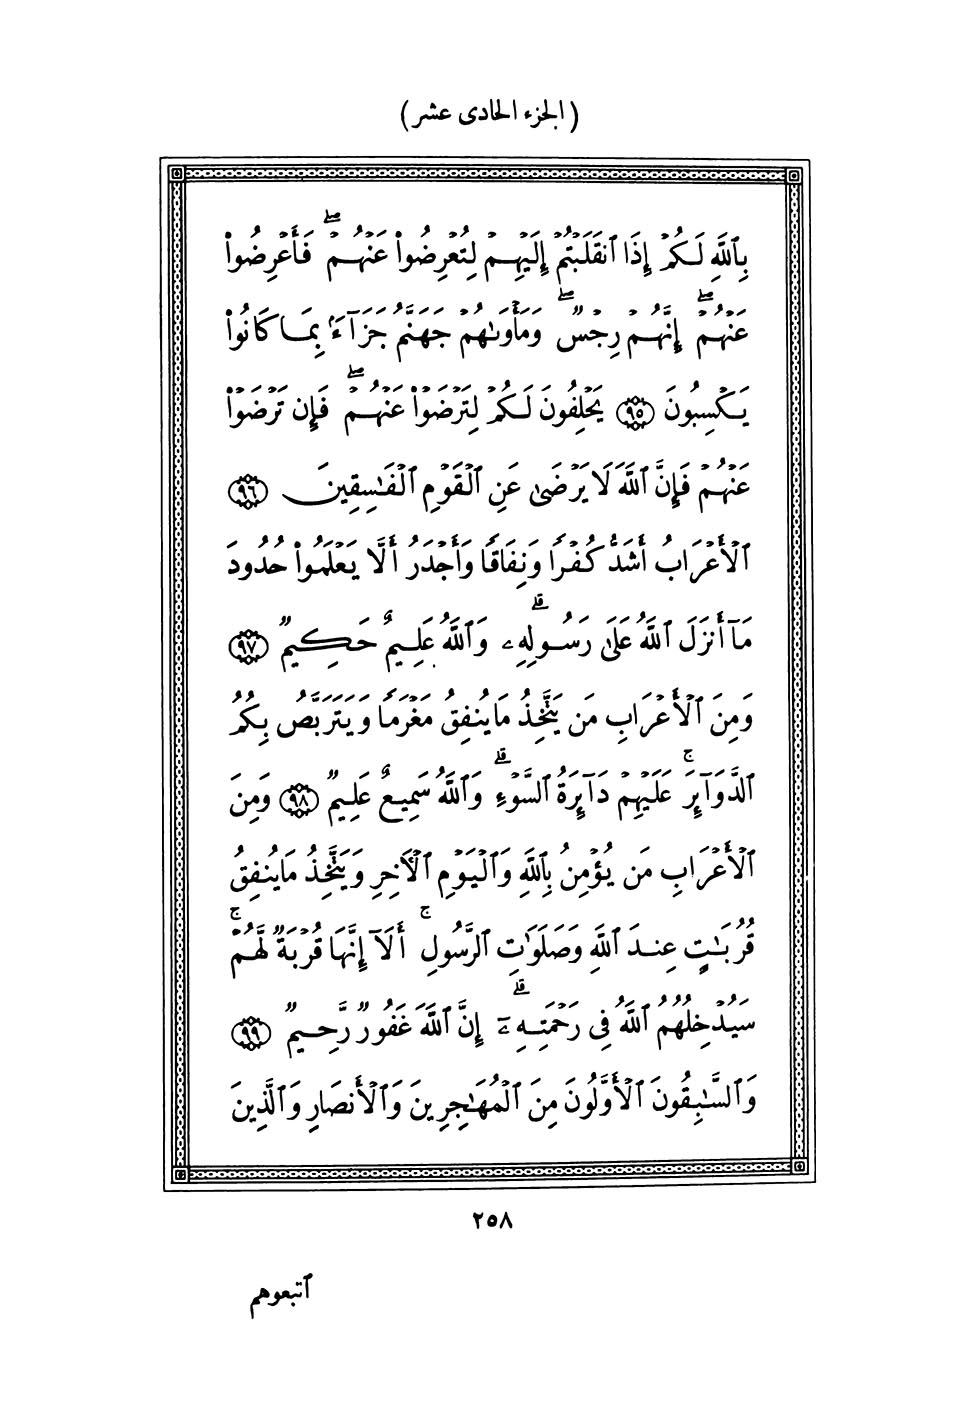 (الجزء الحادى عشر)
بِٱللَّهِ لَكُمْ إِذَا ٱنقَلَبْتُمْ إِلَيْهِمْ لِتُعْرِضُوا۟ عَنْهُمْ ۖ فَأَعْرِضُوا۟
عَنْهُمْ ۖ إِنَّهُمْ رِجْسٌ ۖ وَمَأْوَىٰهُمْ جَهَنَّمُ جَزَآءًۢ بِمَا كَانُوا۟
يَكْسِبُونَ ٩٥ يَحْلِفُونَ لَكُمْ لِتَرْضَوْا۟ عَنْهُمْ ۖ فَإِن تَرْضَوْا۟
عَنْهُمْ فَإِنَّ ٱللَّهَ لَا يَرْضَىٰ عَنِ ٱلْقَوْمِ ٱلْفَـٰسِقِينَ ٩٦
ٱلْأَعْرَابُ أَشَدُّ كُفْرًا وَنِفَاقًا وَأَجْدَرُ أَلَّا يَعْلَمُوا۟ حُدُودَ
مَآ أَنزَلَ ٱللَّهُ عَلَىٰ رَسُولِهِۦ ۗ وَٱللَّهُ عَلِيمٌ حَكِيمٌ ٩٧
وَمِنَ ٱلْأَعْرَابِ مَن يَتَّخِذُ مَا يُنفِقُ مَغْرَمًا وَيَتَرَبَّصُ بِكُمُ
ٱلدَّوَآئِرَ ۚ عَلَيْهِمْ دَآئِرَةُ ٱلسَّوْءِ ۗ وَٱللَّهُ سَمِيعٌ عَلِيمٌ ٩٨ وَمِنَ
ٱلْأَعْرَابِ مَن يُؤْمِنُ بِٱللَّهِ وَٱلْيَوْمِ ٱلْـَٔاخِرِ وَيَتَّخِذُ مَا يُنفِقُ
قُرُبَـٰتٍ عِندَ ٱللَّهِ وَصَلَوَٰتِ ٱلرَّسُولِ ۚ أَلَآ إِنَّهَا قُرْبَةٌ لَّهُمْ ۚ
سَيُدْخِلُهُمُ ٱللَّهُ فِى رَحْمَتِهِۦٓ ۗ إِنَّ ٱللَّهَ غَفُورٌ رَّحِيمٌ ٩٩
وَٱلسَّـٰبِقُونَ ٱلْأَوَّلُونَ مِنَ ٱلْمُهَـٰجِرِينَ وَٱلْأَنصَارِ وَٱلَّذِينَ
٢٥٨
ٱتبعوهم